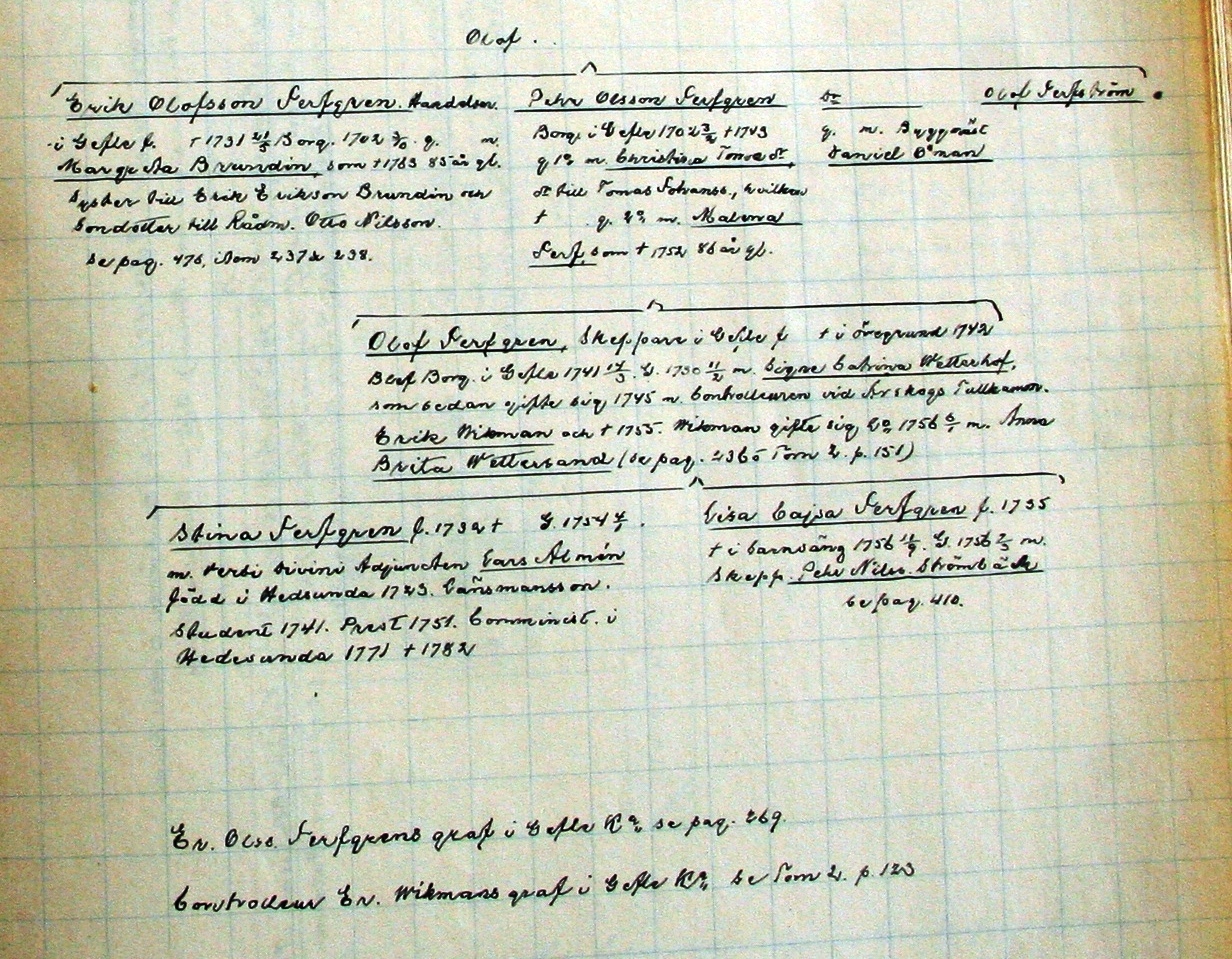 Olof.
Erik Olofsson Ferfgren. Handelsm.
i Gefle f. †1731 21/5 Borg. 1702 g. m.
Margreta Brundin, som †1763 85 år gl.
Syster till Erik Erikson Brundin och
Sondotter till Rådm. Otto Nilsson.
se pag. 476, idem 237 & 238.
Pehr Olsson Ferfgren
Borg. i Gefle 1702 †1743
g 1o m. Christina Tomæ dr,
dr till Tomas Johanss., hvilken
† g. 2o m. Malena
Ferf, som †1752 86 år gl.
Dr
g. m. Byggmäst
Daniel Öman
Olof Ferfström.
Olof Ferfgren, Skeppare i Gefle f † i Öregrund 1742
Blef Borg. i Gefle 1741 G. 1730 11/2 m. Signe Catrina Wetterhof,
som sedan gifte sig 1745 m. Controlleuren vid Tullkamm.
Erik Wikman och †1755. Wikman gifte sig 2o 1756 m. Anna
Brita Wetterband (se pag. 236 o Tom 2. p. 151)
Stina Ferfgren f. 1732 † G. 1754
m. Verbi Divini Adjuncten Lars Almén
född i Hedsunda 1723. Länsmansson.
Student 1741. Prest 1751. Comminist. i
Hedesunda 1771 †1782
Lisa Cajsa Ferfgren f. 1735
† i barnsäng 1756 G. 1756 2/3 m.
Skepp. Pehr Nilss. Strömbäck
se pag. 410.
Er. Olss. Ferfgrens graf i Gefle Ka, se pag. 269.
Controleur Er. Wikmans graf i Gefle Ka, se Tom 2. p. 123